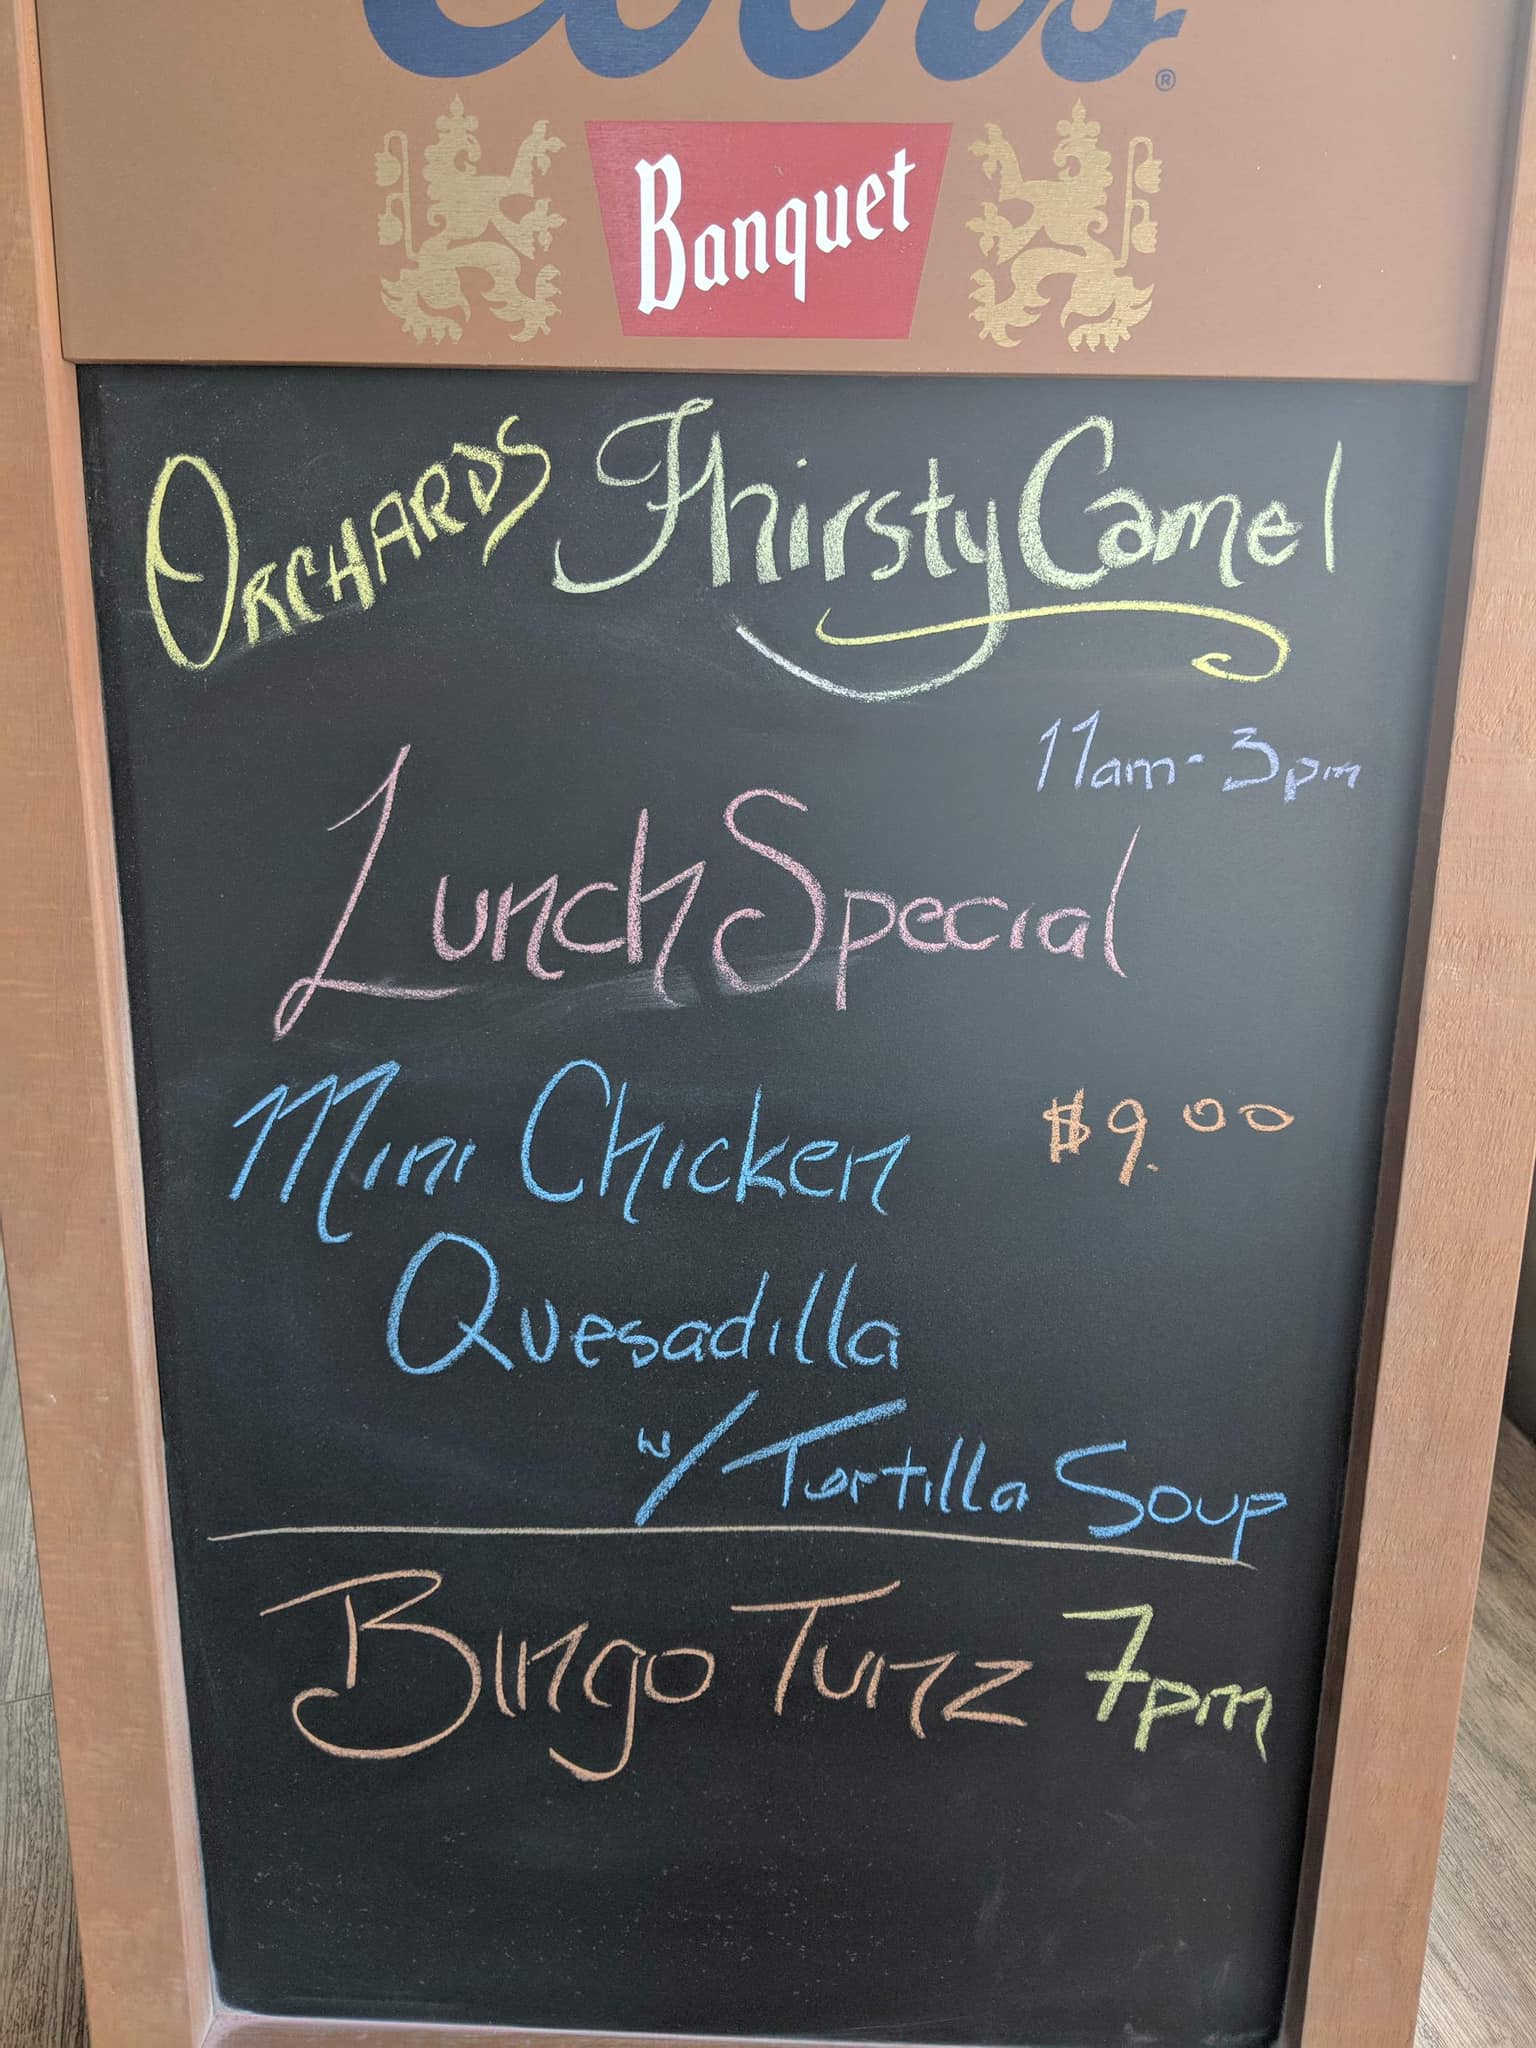 Coors®
Banquet
ORCHARDS Thirsty Camel
11am - 3pm
Lunch Special
Mini Chicken $9.00
Quesadilla
w/ Tortilla Soup
Bingo Tunz 7pm